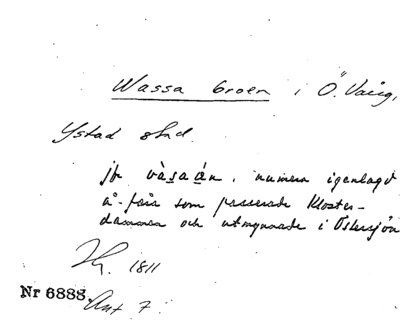 Wassa broen i Ö. Vång,
Ystad stad.
jfr vàsaán, numera igenlagd
å-fåra som passerade Kloster-
dammen och utmynnade i Östersjön
1811
Nr 6888.
Ant 7